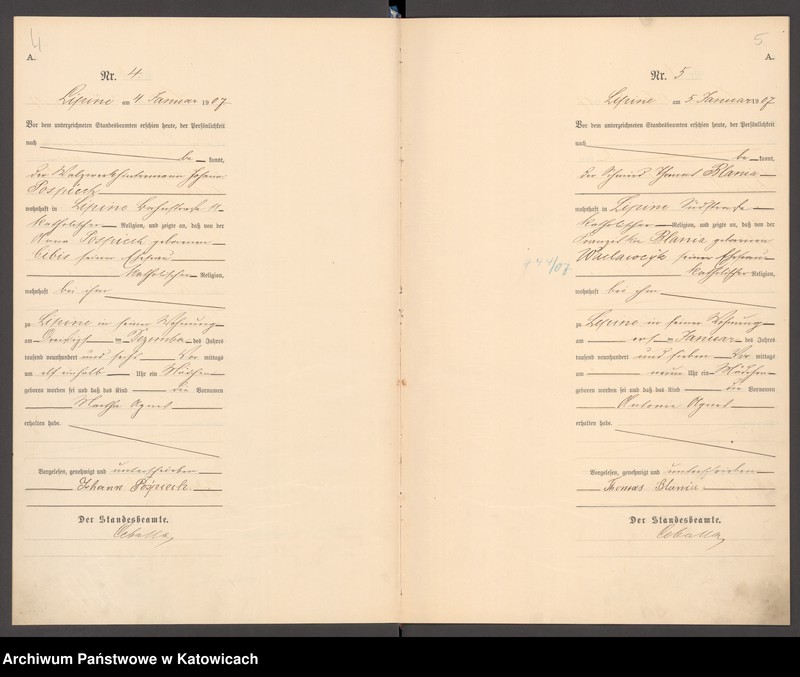 4
A.
Nr. 4
Lipine am 4 Januar 1907
Vor dem unterzeichneten Standesbeamten erschien heute, der Persönlichkeit
nach
be kannt,
der Johann
Pospiech
wohnhaft in Lipine Bahnstraße
katholischer Religion, und zeigte an, daß von der
Pospiech geborenen
Cibis seiner Ehefrau
katholischer Religion,
wohnhaft bei ihm
zu Lipine in seiner Wohnung
am Dezember des Jahres
tausend neunhundert und sechs Vor mittags
um elf einhalb Uhr ein Mädchen
geboren worden sei und daß das Kind die Vornamen
Martha Agnes
erhalten habe.
Vorgelesen, genehmigt und unterschrieben
Johann Pospiech.
Der Standesbeamte.
5
A.
Nr. 5
Lipine am 5 Januar 1907
Vor dem unterzeichneten Standesbeamten erschien heute, der Persönlichkeit
nach
be kannt,
der Schmied Thomas Blania
wohnhaft in Lipine Südstraße
katholischer Religion, und zeigte an, daß von der
Franziska Blania geborenen
seiner Ehefrau
katholischer Religion,
wohnhaft bei ihm
zu Lipine in seiner Wohnung
am Januar des Jahres
tausend neunhundert und sieben Vor mittags
um neun Uhr ein Mädchen
geboren worden sei und daß das Kind die Vornamen
Antonie Agnes
erhalten habe.
Vorgelesen, genehmigt und unterschrieben
Thomas Blania
Der Standesbeamte.
Archiwum Państwowe w Katowicach